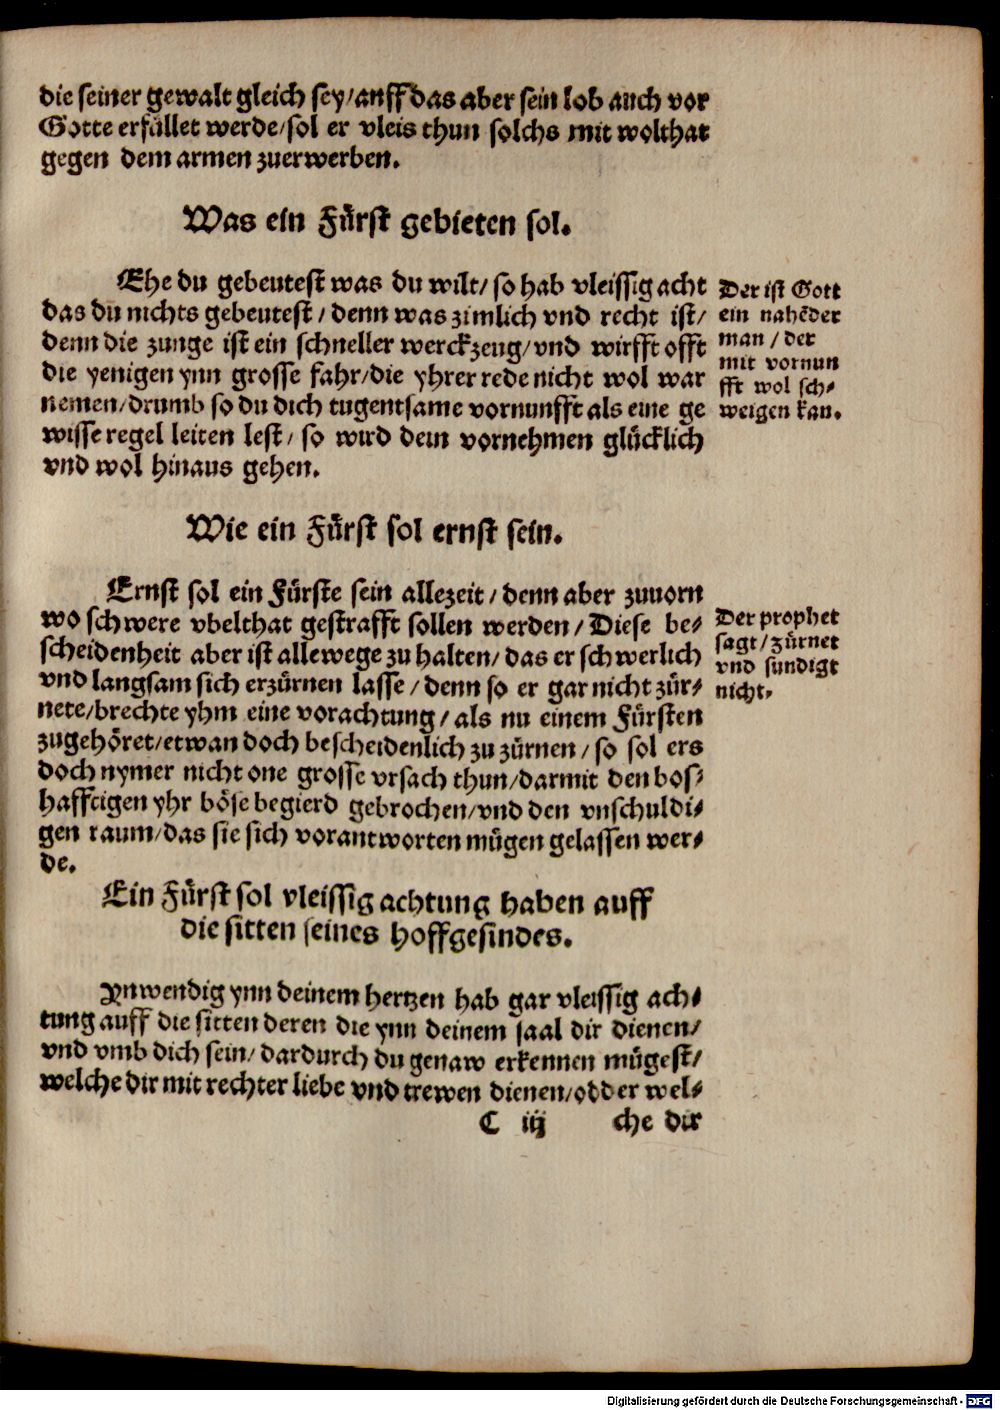 die seiner gewalt gleich sey/auff das aber sein lob auch vor
Gotte erfüllet werde/sol er vleis thun solchs mit wolthat
gegen dem armen zuerwerben.
Was ein Fürst gebieten sol.
Ehe du gebeutest was du wilt/ so hab vleissig acht
das du nichts gebeutest/ denn was zimlich vnd recht ist/
denn die zunge ist ein schneller werckzeug/vnd wirfft offt
die yenigen ynn grosse fahr/die yhrer rede nicht wol war
nemen/drumb so du dich tugentsame vornunfft als eine ge
wisse regel leiten lest/ so wird dein vornehmen glücklich
vnd wol hinaus gehen.
Der ist Gott
ein nahẽder
man / der
mit vornun
fft wol sch⸗
weigen kan.
Wie ein Fürst sol ernst sein.
Ernst sol ein Fürste sein allezeit/ denn aber zuuorn
wo schwere vbelthat gestrafft sollen werden/ Diese be⸗
scheidenheit aber ist allewege zu halten/ das er schwerlich
vnd langsam sich erzürnen lasse/ denn so er gar nicht zür⸗
nete/brechte yhm eine vorachtung/ als nu einem Fürsten
zugehöret/etwan doch bescheidenlich zu zürnen/ so sol ers
doch nymer nicht one grosse vrsach thun/darmit den bos⸗
hafftigen yhr böse begierd gebrochen/vnd den vnschuldi⸗
gen raum/das sie sich vorantworten mügen gelassen wer⸗
de.
Der prophet
sagt/ zürnet
vnd sundigt
nicht.
Ein Fürst sol vleissig achtung haben auff
die sitten seines hoffgesindes.
Ynwendig ynn deinem hertzen hab gar vleissig ach⸗
tung auff die sitten deren die ynn deinem saal dir dienen/
vnd vmb dich sein/ dardurch du genaw erkennen mügest/
welche dir mit rechter liebe vnd trewen dienen/odder wel⸗
C iij che dir
Digitalisierung gefördert durch die Deutsche Forschungsgemeinschaft - DFG